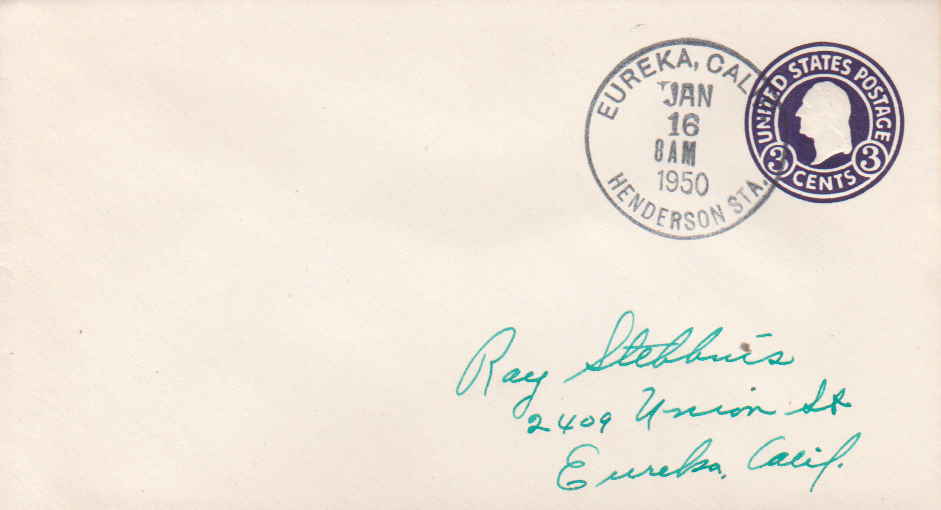 EUREKA, CAL
JAN
16
8 AM
1950
HENDERSON STA.
UNITED STATES POSTAGE
3 CENTS 3
Ray Stebbins
2409 Union St
Eureka, Calif.